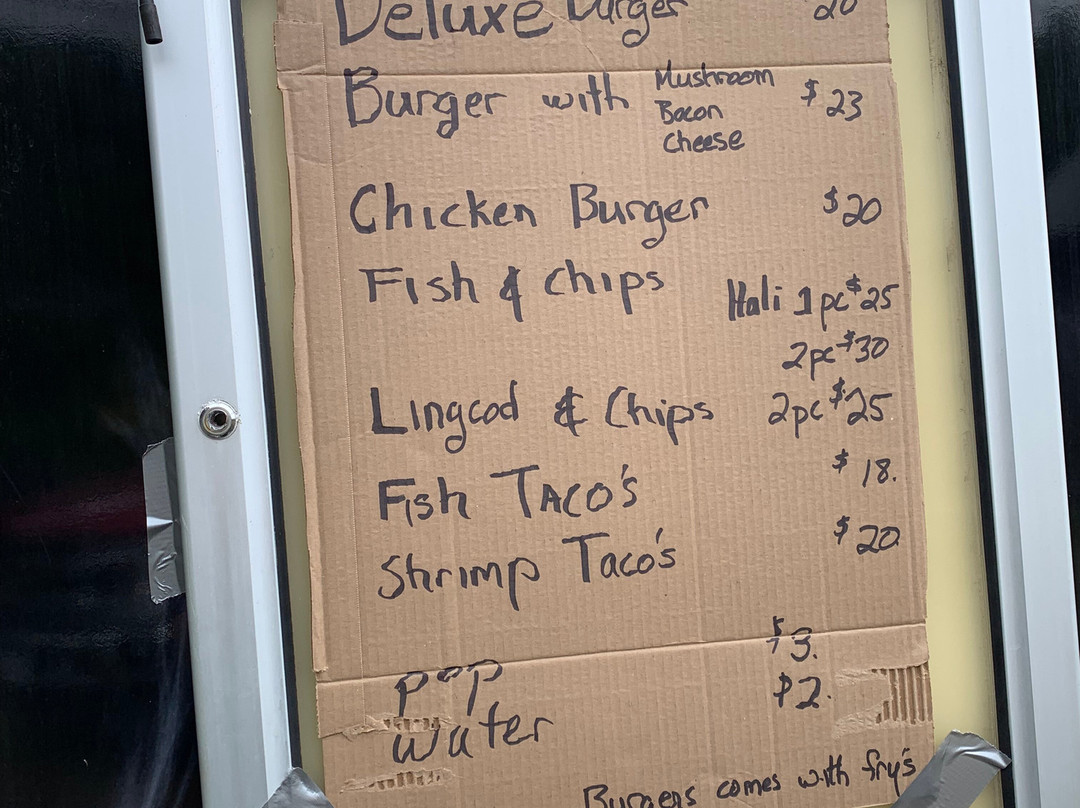 Deluxe Burger 20
Burger with Mushroom $23
Bacon
Cheese
Chicken Burger $20
Fish & Chips Hali 1pc $25
2pc $30
Lingcod & Chips 2pc $25.
Fish Taco's $18.
Shrimp Taco's $20
pop $3.
water $2.
Burgers comes with fry's